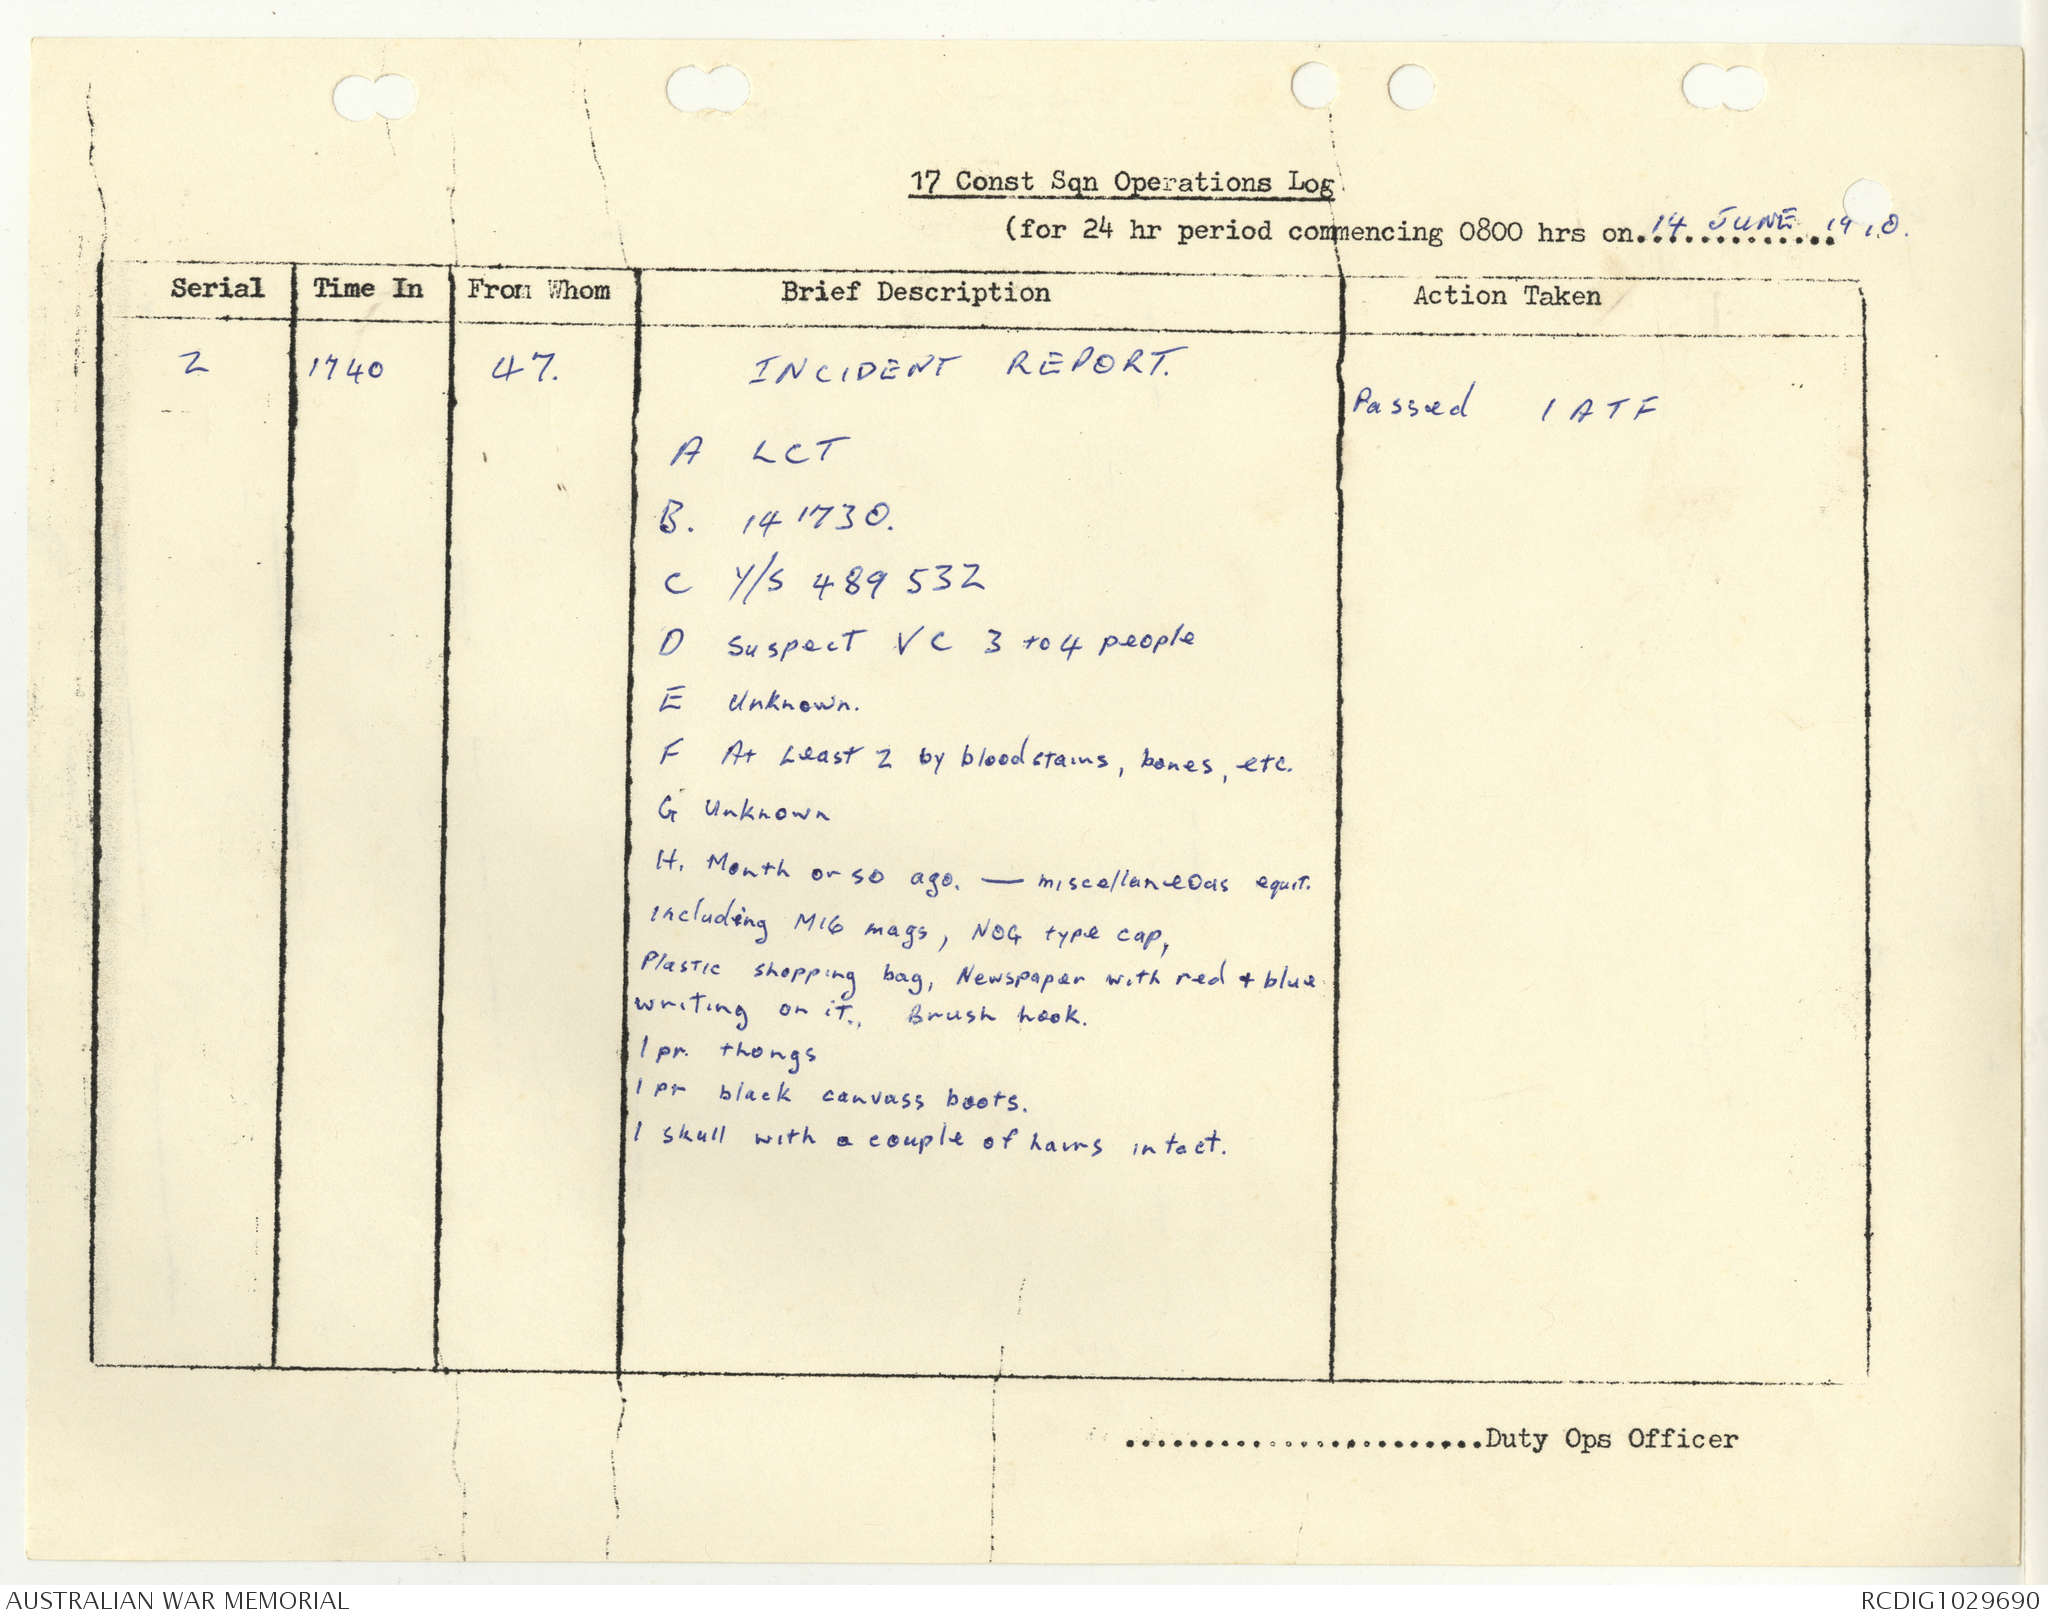 17 Const Sqn Operations Log
(for 24 hr period commencing 0800 hrs on 14 JUNE 1970.
Serial Time In From Whom Brief Description Action Taken
2 1740 47. INCIDENT REPORT.
Passed 1 ATF
A LCT
B. 141730.
C Y/S 489 532
D Suspect VC 3 to 4 people
E Unknown.
F At Least 2 by bloodstains, bones, etc.
G Unknown
H. Month or so ago. — miscellaneous equit.
including M16 mags, NOG type cap,
Plastic shopping bag, Newspaper with red + blue
writing on it., Brush hook.
1 pr. thongs
1 pr black canvass boots.
1 skull with a couple of hairs intact.
.......................Duty Ops Officer
AUSTRALIAN WAR MEMORIAL RCDIG1029690